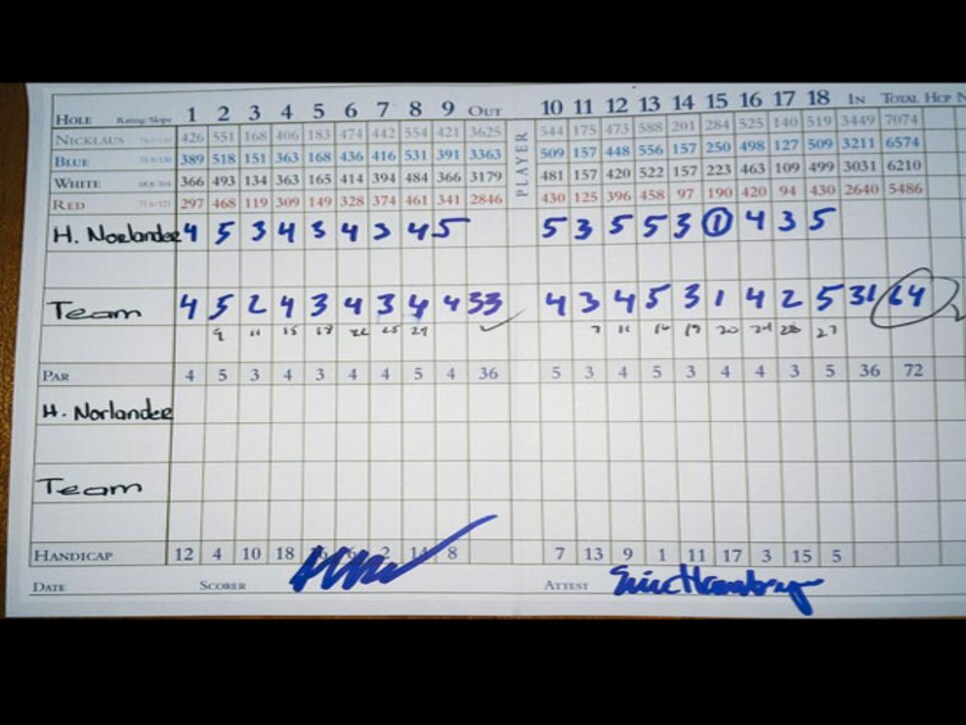 HOLE Rating/Slope 1 2 3 4 5 6 7 8 9 OUT PLAYER 10 11 12 13 14 15 16 17 18 IN TOTAL HCP
NICKLAUS 426 551 168 406 183 474 442 554 421 3625 544 175 473 588 201 284 525 140 519 3449 7074
BLUE 389 518 151 363 168 436 416 531 391 3363 509 157 448 556 157 250 498 127 509 3211 6574
WHITE 366 493 134 363 165 414 394 484 366 3179 481 157 420 522 157 223 463 109 499 3031 6210
RED 297 468 119 309 149 328 374 461 341 2846 430 125 396 458 97 190 420 94 430 2640 5486
H. Norlander 4 5 3 4 3 4 3 4 5 5 3 5 5 3 1 4 3 5
Team 4 5 2 4 3 4 3 4 4 33 4 3 4 5 3 1 4 2 5 31 64
9 11 15 18 22 25 29 7 11 16 19 20 24 26 27
PAR 4 5 3 4 3 4 4 5 4 36 5 3 4 5 3 4 4 3 5 36 72
H. Norlander
Team
HANDICAP 12 4 10 18 2 14 8 7 13 9 1 11 17 3 15 5
DATE SCORER ATTEST